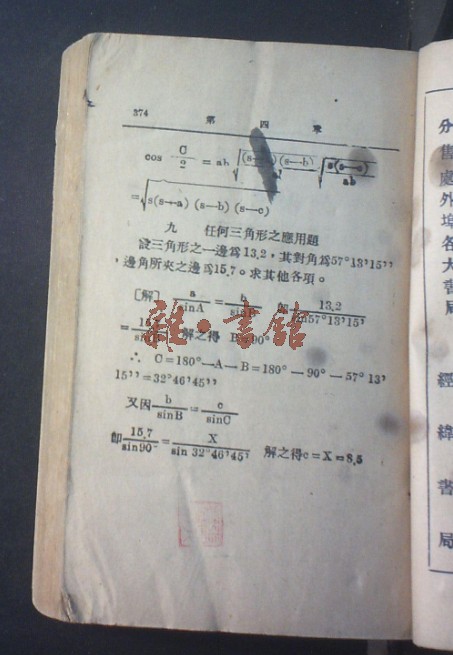 374 第四章
cos C/2 = ab √((s—a)(s—b)/ab) √(s(s—c)/ab)
=√s(s—a) (s—b) (s—c)
九 任何三角形之應用題
設三角形之一邊爲13,2，其對角爲57°13’15’’
，邊角所夾之邊爲15,7。求其他各項。
〔解〕 a/sinA = b/sinB 13,2/sin57°13’15’
= 解之得 B=90°
∴ C=180°—A—B=180°—90°—57°13’
15’’=32°46’45’’
又因 b/sinB = c/sinC
卽 15,7/sin90° = X/sin 32°46’45’ 解之得c=X=8,5
雜·書館
分售處外埠各大書局
經緯書局